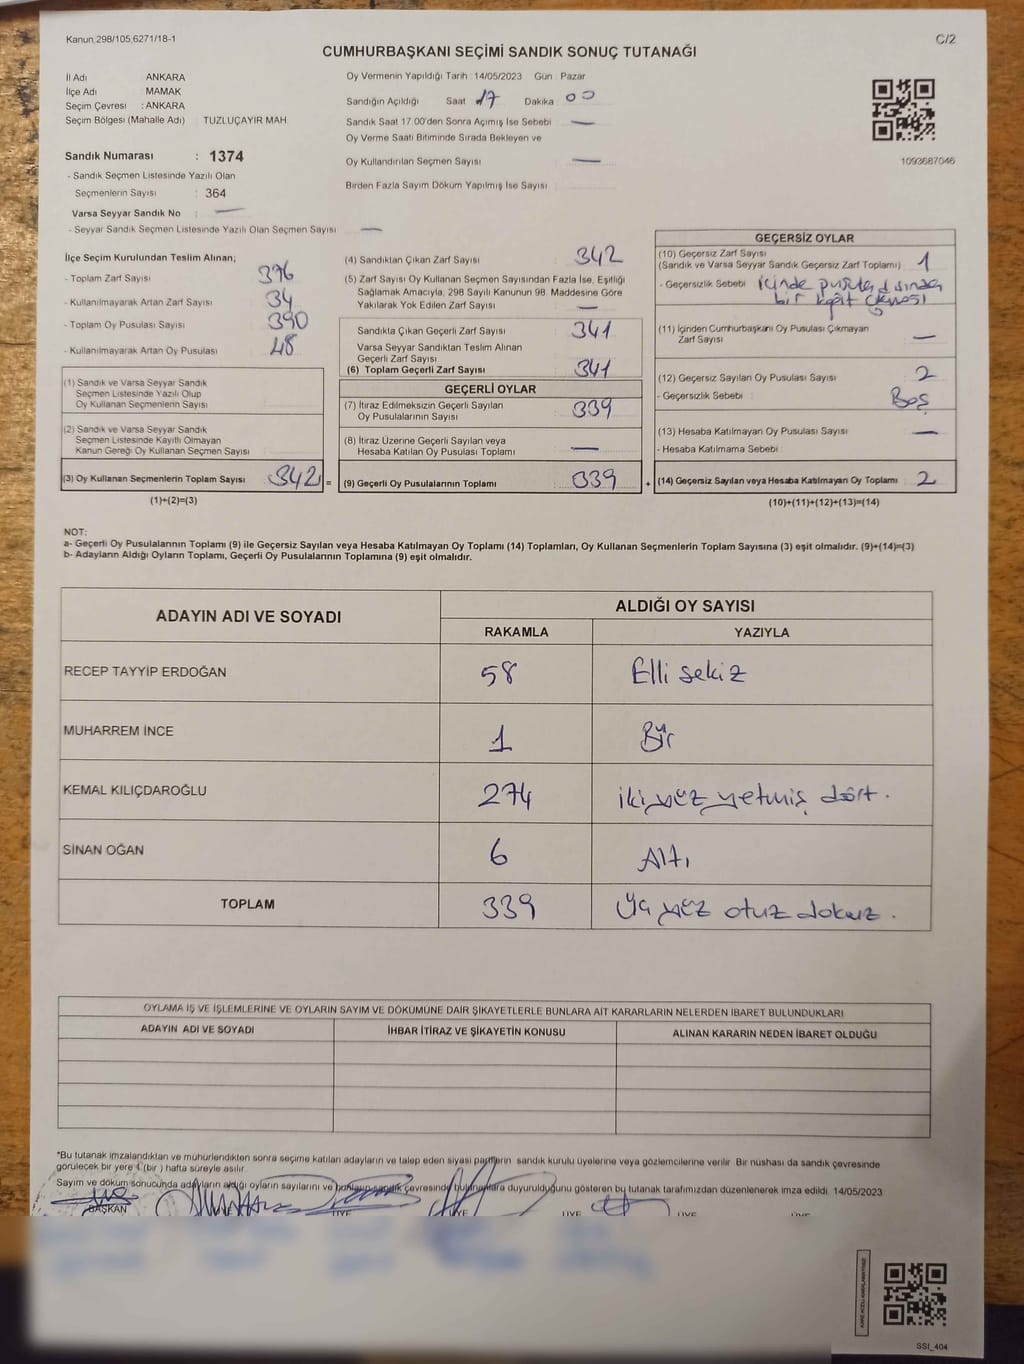 Kanun,298/105,6271/18-1
C/2
CUMHURBAŞKANI SEÇİMİ SANDIK SONUÇ TUTANAĞI
İl Adı ANKARA
İlçe Adı MAMAK
Seçim Çevresi : ANKARA
Seçim Bölgesi (Mahalle Adı) TUZLUÇAYIR MAH
Oy Vermenin Yapıldığı Tarih 14/05/2023 Gün Pazar
Sandığın Açıldığı Saat 17 Dakika 00
Sandık Saat 17.00'den Sonra Açımış İse Sebebi —
Oy Verme Saati Bitiminde Sırada Bekleyen ve
Oy Kullandırılan Seçmen Sayısı —
Birden Fazla Sayım Döküm Yapılmış İse Sayısı
1093687046
Sandık Numarası : 1374
- Sandık Seçmen Listesinde Yazılı Olan
Seçmenlerin Sayısı : 364
Varsa Seyyar Sandık No : —
- Seyyar Sandık Seçmen Listesinde Yazılı Olan Seçmen Sayısı —
İlçe Seçim Kurulundan Teslim Alınan;
- Toplam Zarf Sayısı 376
- Kullanılmayarak Artan Zarf Sayısı 34
- Toplam Oy Pusulası Sayısı 390
- Kullanılmayarak Artan Oy Pusulası 48
(1) Sandık ve Varsa Seyyar Sandık
Seçmen Listesinde Yazılı Olup
Oy Kullanan Seçmenlerin Sayısı
(2) Sandık ve Varsa Seyyar Sandık
Seçmen Listesinde Kayıtlı Olmayan
Kanun Gereği Oy Kullanan Seçmen Sayısı
(3) Oy Kullanan Seçmenlerin Toplam Sayısı 342 =
(1)+(2)=(3)
(4) Sandıktan Çıkan Zarf Sayısı 342
(5) Zarf Sayısı Oy Kullanan Seçmen Sayısından Fazla İse, Eşitliği
Sağlamak Amacıyla, 298 Sayılı Kanunun 98. Maddesine Göre
Yakılarak Yok Edilen Zarf Sayısı —
Sandıkta Çıkan Geçerli Zarf Sayısı 341
Varsa Seyyar Sandıktan Teslim Alınan
Geçerli Zarf Sayısı
(6) Toplam Geçerli Zarf Sayısı 341
GEÇERLİ OYLAR
(7) İtiraz Edilmeksizin Geçerli Sayılan
Oy Pusulalarının Sayısı 339
(8) İtiraz Üzerine Geçerli Sayılan veya
Hesaba Katılan Oy Pusulası Toplamı —
(9) Geçerli Oy Pusulalarının Toplamı 339 +
GEÇERSİZ OYLAR
(10) Geçersiz Zarf Sayısı
(Sandık ve Varsa Seyyar Sandık Geçersiz Zarf Toplamı) 1
- Geçersizlik Sebebi içinde pusula dışında
bir kağıt çıkması
(11) İçinden Cumhurbaşkanı Oy Pusulası Çıkmayan
Zarf Sayısı —
(12) Geçersiz Sayılan Oy Pusulası Sayısı 2
- Geçersizlik Sebebi Boş
(13) Hesaba Katılmayan Oy Pusulası Sayısı —
- Hesaba Katılmama Sebebi
(14) Geçersiz Sayılan veya Hesaba Katılmayan Oy Toplamı 2
(10)+(11)+(12)+(13)=(14)
NOT:
a- Geçerli Oy Pusulalarının Toplamı (9) ile Geçersiz Sayılan veya Hesaba Katılmayan Oy Toplamı (14) Toplamları, Oy Kullanan Seçmenlerin Toplam Sayısına (3) eşit olmalıdır. (9)+(14)=(3)
b- Adayların Aldığı Oyların Toplamı, Geçerli Oy Pusulalarının Toplamına (9) eşit olmalıdır.
ADAYIN ADI VE SOYADI
ALDIĞI OY SAYISI
RAKAMLA YAZIYLA
RECEP TAYYİP ERDOĞAN 58 Elli sekiz
MUHARREM İNCE 1 Bir
KEMAL KILIÇDAROĞLU 274 iki yüz yetmiş dört.
SİNAN OĞAN 6 Altı
TOPLAM 339 Üç yüz otuz dokuz.
OYLAMA İŞ VE İŞLEMLERİNE VE OYLARIN SAYIM VE DÖKÜMÜNE DAİR ŞİKAYETLERLE BUNLARA AİT KARARLARIN NELERDEN İBARET BULUNDUKLARI
ADAYIN ADI VE SOYADI İHBAR İTİRAZ VE ŞİKAYETİN KONUSU ALINAN KARARIN NEDEN İBARET OLDUĞU
*Bu tutanak imzalandıktan ve mühürlendikten sonra seçime katılan adayların ve talep eden siyasi partilerin sandık kurulu üyelerine veya gözlemcilerine verilir. Bir nüshası da sandık çevresinde
görülecek bir yere 1 (bir ) hafta süreyle asılır.
Sayım ve döküm sonucunda adayların aldığı oyların sayılarını ve bunların sandık çevresinde bulunanlara duyurulduğunu gösteren bu tutanak tarafımızdan düzenlenerek imza edildi. 14/05/2023
BAŞKAN ÜYE ÜYE ÜYE ÜYE
SSI_404